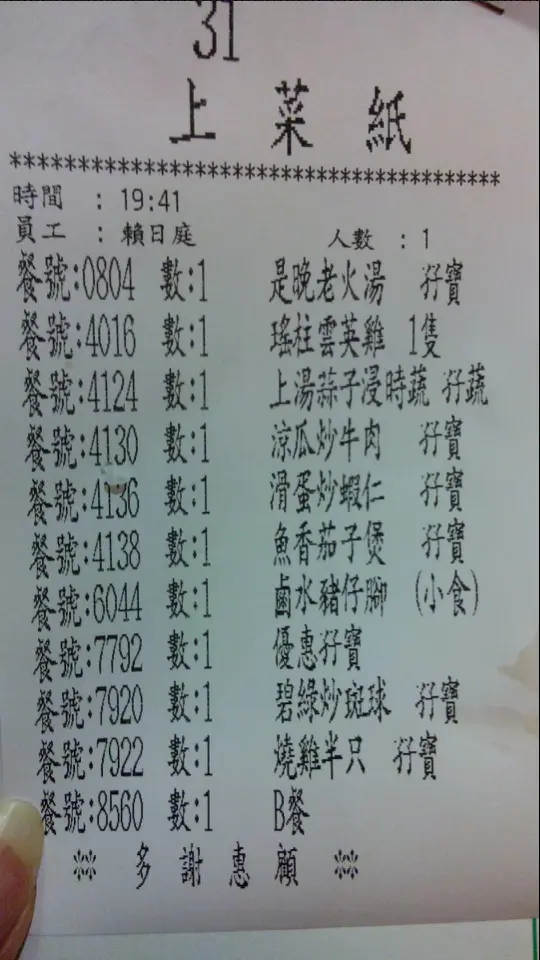 31
上菜紙
****************************************
時間 : 19:41
員工 : 賴日庭 人數 : 1
餐號:0804 數:1 是晚老火湯 孖寶
餐號:4016 數:1 瑤柱雲英雞 1隻
餐號:4124 數:1 上湯蒜子浸時蔬 孖蔬
餐號:4130 數:1 涼瓜炒牛肉 孖寶
餐號:4136 數:1 滑蛋炒蝦仁 孖寶
餐號:4138 數:1 魚香茄子煲 孖寶
餐號:6044 數:1 鹵水豬仔腳 (小食)
餐號:7792 數:1 優惠孖寶
餐號:7920 數:1 碧綠炒斑球 孖寶
餐號:7922 數:1 燒雞半只 孖寶
餐號:8560 數:1 B餐
** 多謝惠顧 **